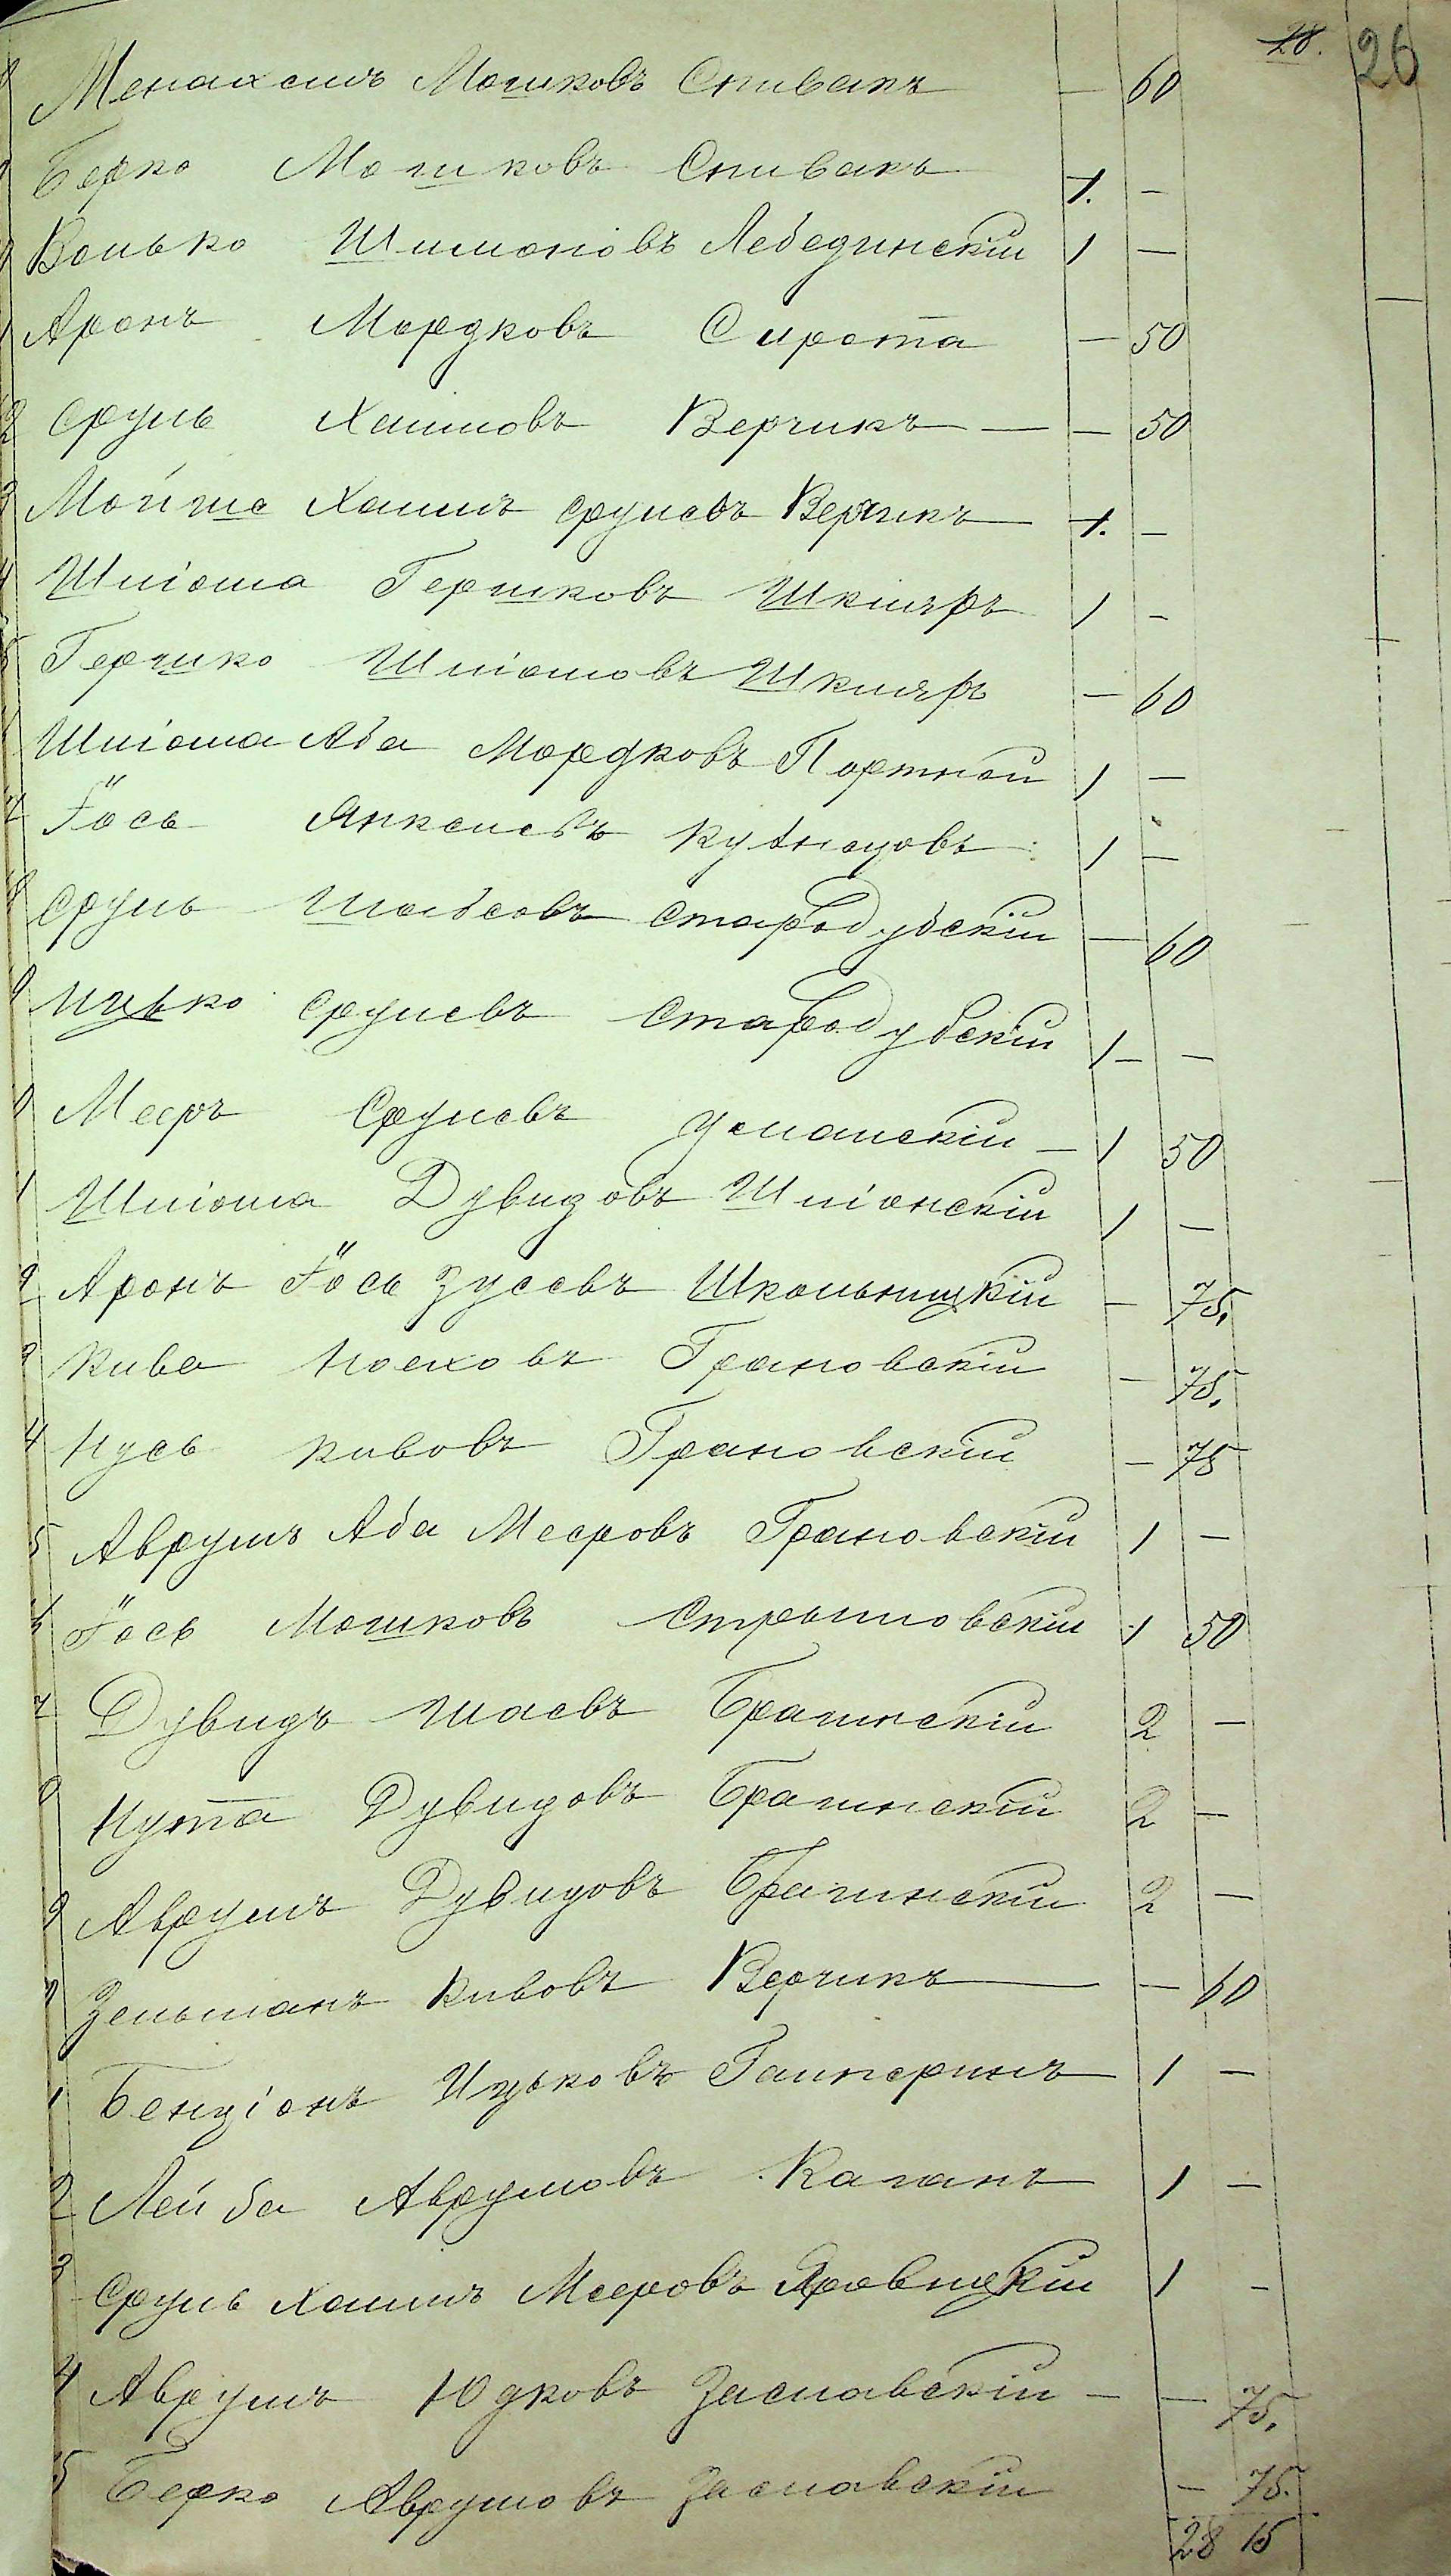 28. 26
Менахемъ Мошковъ Спивакъ — 60
Берко Мошковъ Спивакъ 1. —
Волько Шимоновъ Лебединскій 1 —
Аронъ Мордковъ Сирота — 50
Сруль Хаимовъ Верчикъ — — 50
Мойше Хаимъ Срулевъ Верчикъ 1. —
Шліома Гершковъ Шкляръ 1 —
Гершко Шліомовъ Шкляръ — 60
Шліома Аба Мордковъ Портной 1 —
Іось Янкелевъ Кузнецовъ 1 —
Сруль Шабсовъ Стародубскій — 60
Ицько Срулевъ Стародубскій 1 — —
Мееръ Срулевъ Уманскій — 1 50
Шліома Дувидовъ Шліонскій 1 —
Аронъ Іось Зусевъ Школьницкій — 75.
Кива Ноеховъ Грановскій — 75.
Нусь Кивовъ Грановскій — 75
Аврумъ Аба Мееровъ Грановскій 1 —
Іось Мошковъ Стрымовскій 1 50
2 Дувидъ Шаевъ Брагинскій 2 —
Нута Дувидовъ Брагинскій 2 —
9 Аврумъ Дувидовъ Брагинскій 2 —
Зельманъ Кивовъ Верчикъ — 60
1 Бенціонъ Ицьковъ Галперинъ 1 —
2 Лейба Аврумовъ Каганъ 1 —
3 Сруль Хаимъ Мееровъ Яровицкій 1 —
4 Аврумъ Юдковъ Заславскій — — 75.
5 Берко Аврумовъ Заславскій — 75.
28 15